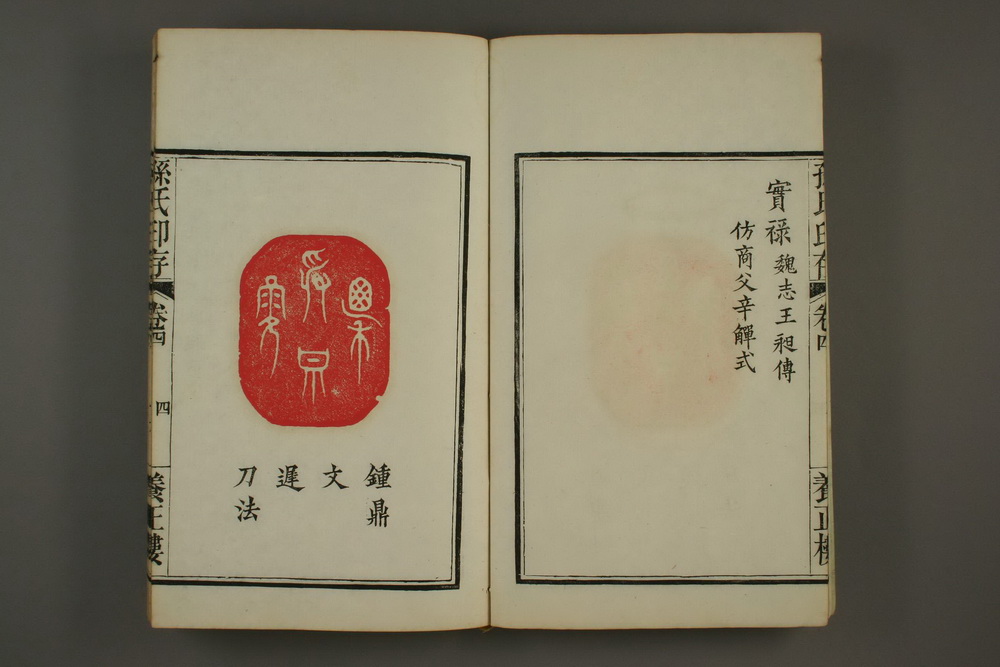 孫氏印存
卷四
養正樓
實祿 魏志王昶傳
仿商父辛觶式
鍾鼎
文
遲
刀法
孫氏印存
卷四
四
養正樓